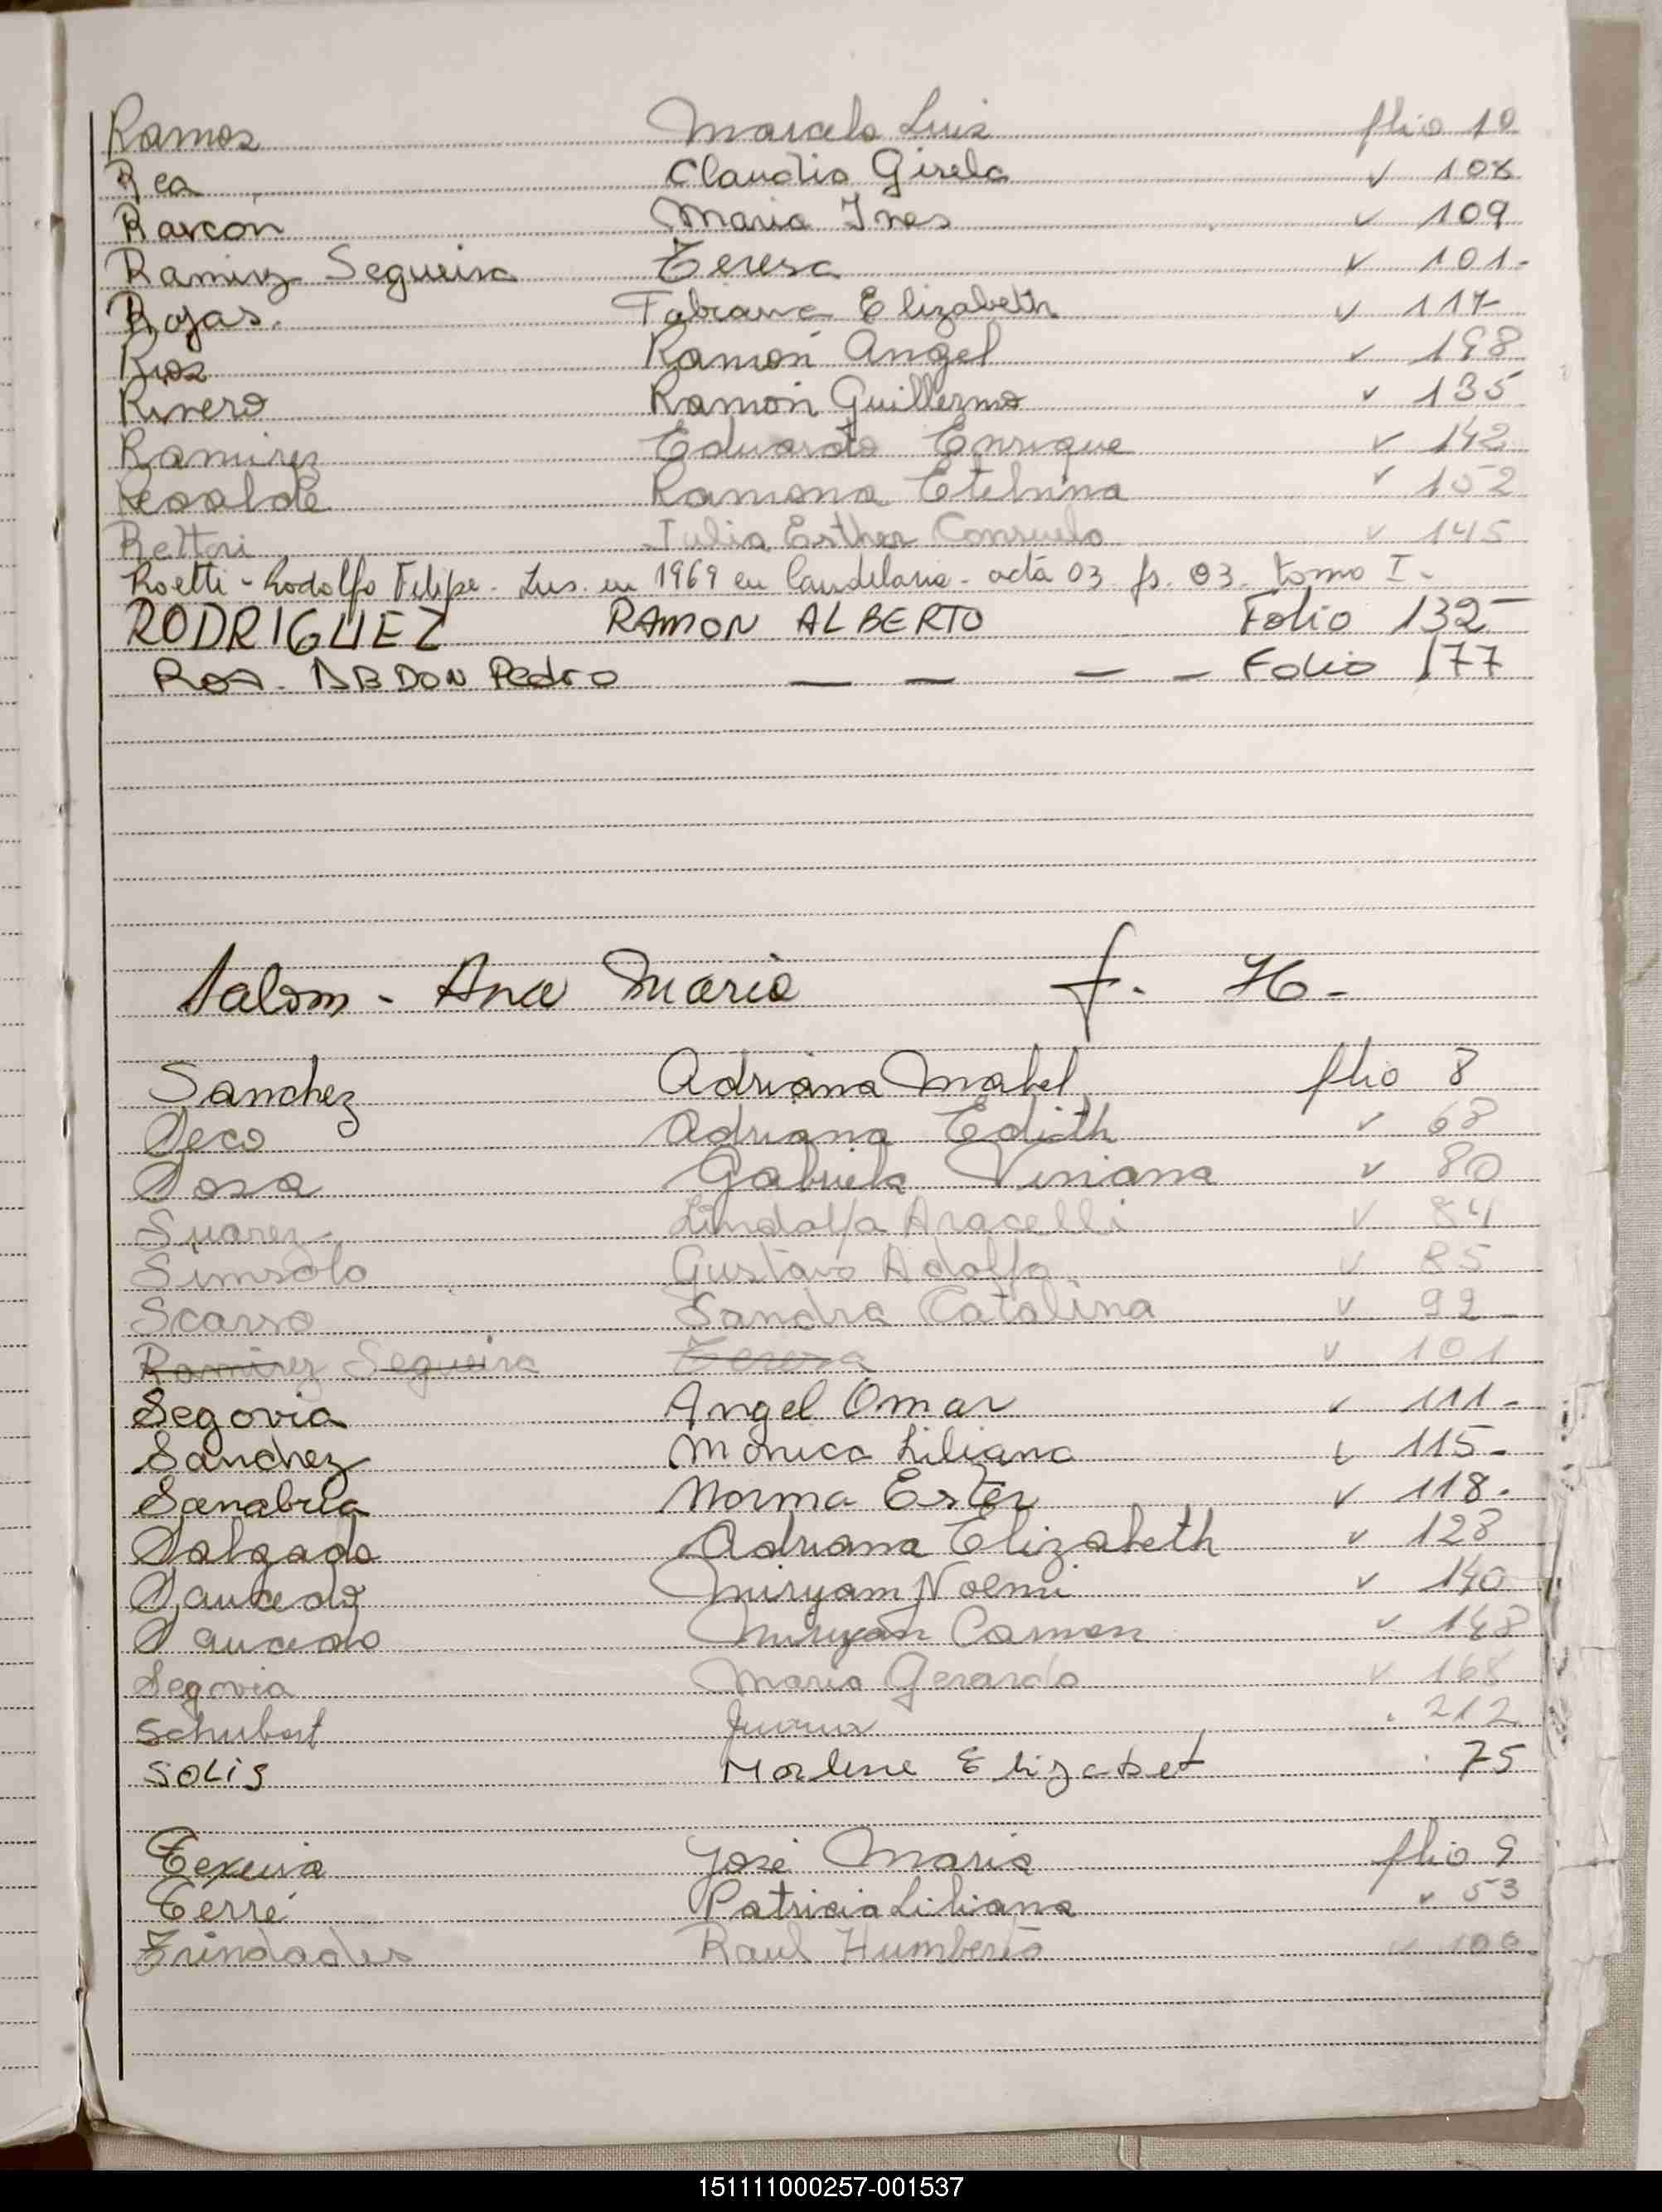 Ramos Marcelo Luis flio 10
Rea Claudia Gisela v 108
Rarcon Maria Ines v 109
Ramirz Segueira Teresa v 101.
Rojas. Fabiana Elizabeth v 117
Rios Ramón Angel v 198
Rivero Ramón Guillermo v 135
Ramirez Eduardo Enrique v 142
Ramona Etelvina v 152
Rettori Julia Esther Consuelo v 145
Roetti - Rodolfo Felipe - Ins. en 1969 en Candelaria - acta 03 fs. 03. tomo I -
RODRIGUEZ RAMON ALBERTO Folio 132 -
Roa - ABDON Pedro — — — — Folio 177
Salom - Ana Maria f. 76 -
Sanchez Adriana Mabel flio 8
Seco Adriana Edith v 68
Sosa Gabriela Viviana v 80
Suarez Lindolfa Aracelli v 84
Simsolo Gustavo Adolfo v 85
Scarso Sandra Catalina v 92 -
Ramirez Segueira Teresa v 101
Segovia Angel Omar v 111 -
Sanchez Monica Liliana v 115 -
Sanabria Norma Ester v 118.
Salgado Adriana Elizabeth v 128
Saucedo Miryam Noemi v 140
Saucedo Miryan Carmen v 148
Segovia Mario Gerardo v 168
Schubert . 212
SOLIS Marlene Elizabet . 75
Texeira José Maria flio 9
Terré Patricia Liliana v 53
Trindades Raul Humberto v 100.
151111000257-001537